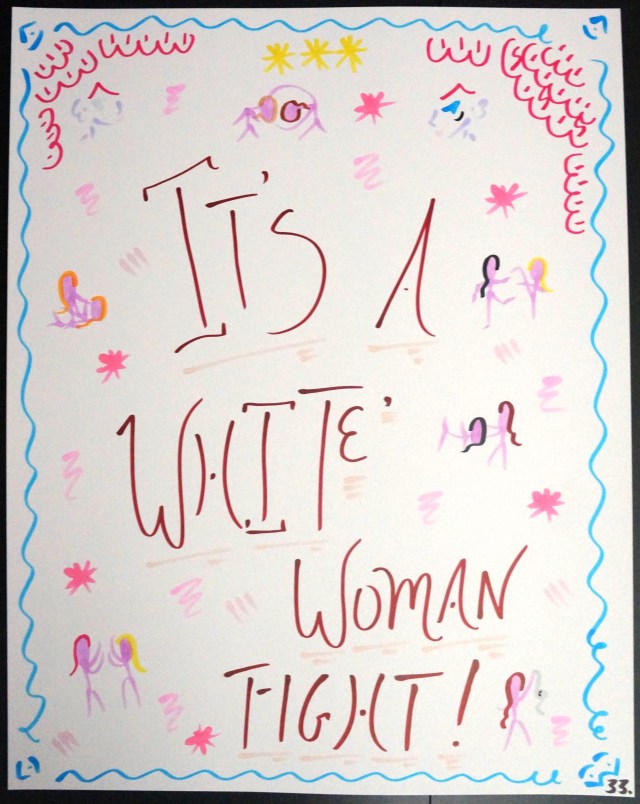 IT'S A
WHITE'
WOMAN
FIGHT!
33.